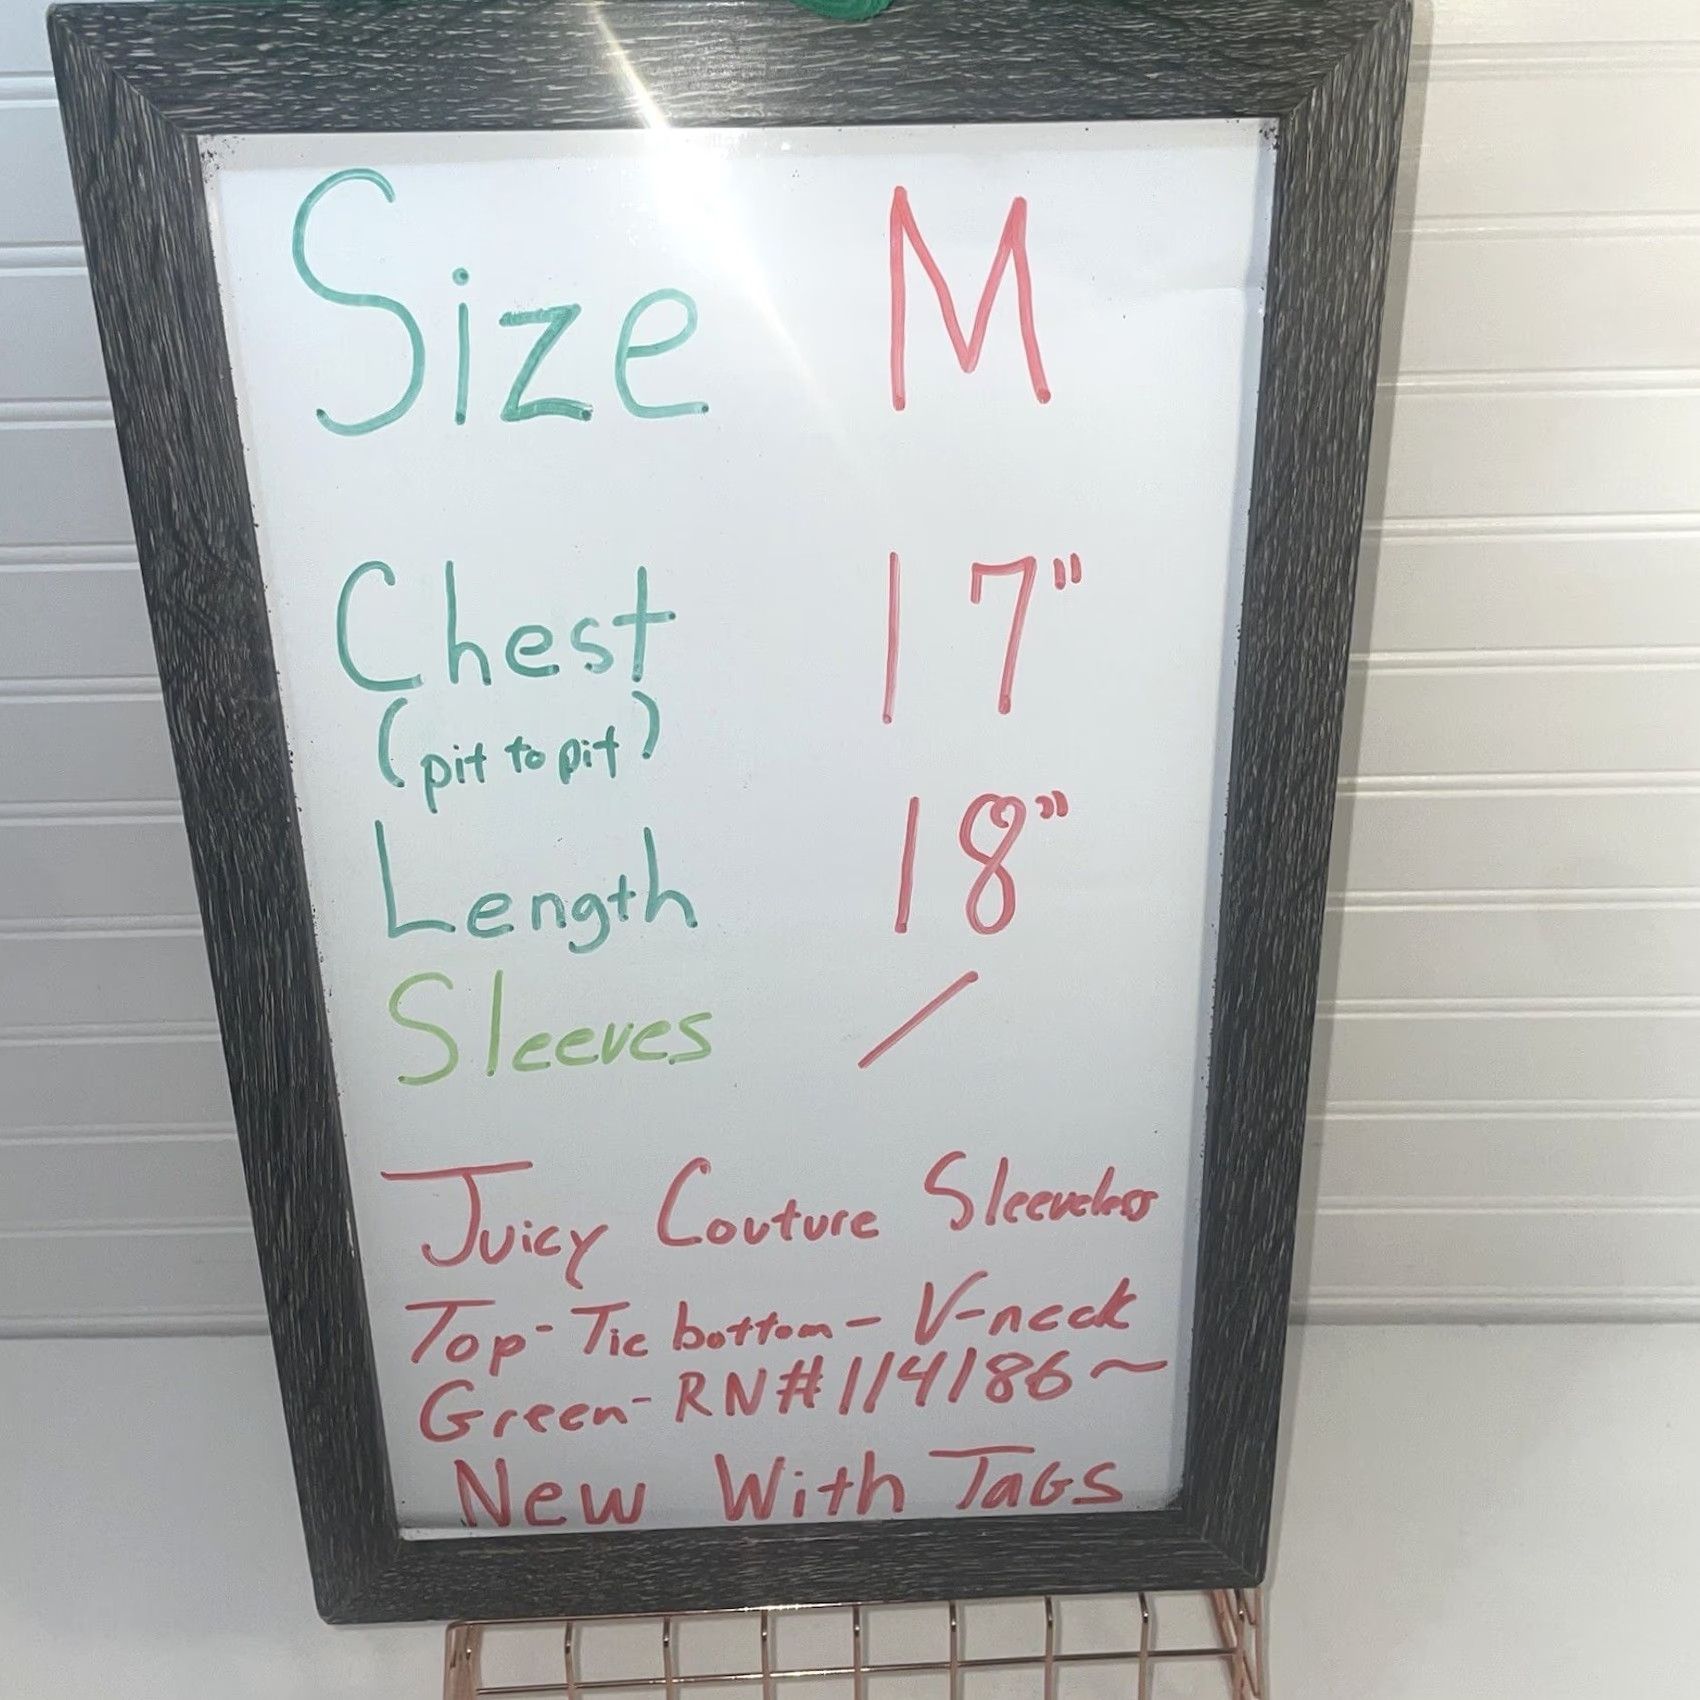 Size M
Chest 17"
(pit to pit)
Length 18"
Sleeves /
Juicy Couture Sleeveless
Top - Tie bottom - V-neck
Green - RN#114186 ~
New With Tags